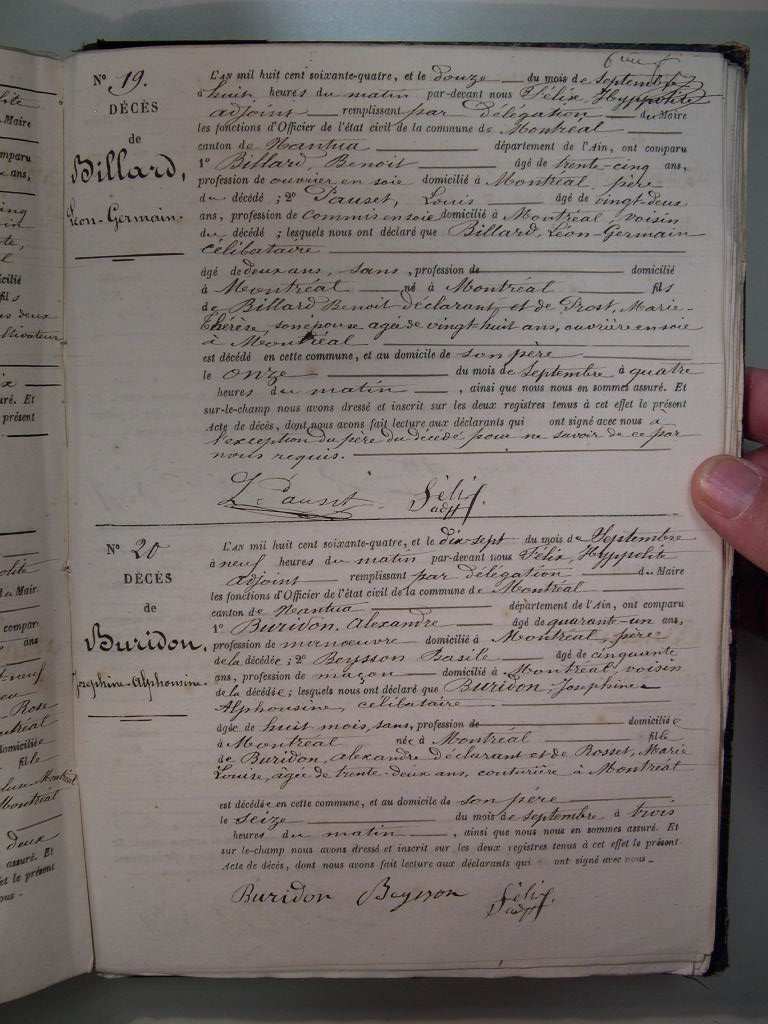 N° 19.
DÉCÈS
de
Billard,
Léon-Germain.
L'AN mil huit cent soixante-quatre, et le douze du mois de Septembre
à huit heures du matin par-devant nous Félix, Hyppolite
adjoint remplissant par délégation du Maire
les fonctions d'Officier de l'état civil de la commune de Montréal
canton de Nantua département de l'Ain, ont comparu
1° Billard, Benoit âgé de trente-cinq ans,
profession de ouvrier en soie domicilié à Montréal, père
du décédé ; 2° Pauset, Louis âgé de vingt-deux
ans, profession de Commis en soie domicilié à Montréal, voisin
du décédé ; lesquels nous ont déclaré que Billard, Léon-Germain
célibataire
âgé de deux ans, sans, profession de domicilié
à Montréal né à Montréal fils
de Billard Benoit déclarant, et de Prost, Marie-
Thérèse, son épouse agée de vingt huit ans, ouvrière en soie
à Montréal
est décédé en cette commune, et au domicile de son père
le onze du mois de Septembre à quatre
heures du matin , ainsi que nous nous en sommes assuré. Et
sur-le-champ nous avons dressé et inscrit sur les deux registres tenus à cet effet le présent
Acte de décès, dont nous avons fait lecture aux déclarants qui ont signé avec nous à
l'exception du père du décédé pour ne savoir de ce par
nous requis.
L. Pauset Félix.
adjt
N° 20
DÉCÈS
de
Buridon,
Josephine-Alphonsine.
L'AN mil huit cent soixante-quatre, et le dix-sept du mois de Septembre
à neuf heures du matin par-devant nous Félix, Hyppolite
adjoint remplissant par délégation du Maire
les fonctions d'Officier de l'état civil de la commune de Montréal
canton de Nantua département de l'Ain, ont comparu
1° Buridon, Alexandre âgé de quarante-un ans,
profession de manoeuvre domicilié à Montréal, père
de la décédée ; 2° Beysson Basile âgé de cinquante
ans, profession de maçon domicilié à Montréal voisin
de la décédée ; lesquels nous ont déclaré que Buridon, Josephine
Alphonsine, célibataire
âgée de huit mois, sans, profession de domiciliée
à Montréal née à Montréal fille
de Buridon, alexandre déclarant et de Rosset, Marie
Louise, agée de trente-deux ans, couturière à Montréal
est décédée en cette commune, et au domicile de son père
le seize du mois de Septembre à trois
heures du matin , ainsi que nous nous en sommes assuré. Et
sur le-champ nous avons dressé et inscrit sur les deux registres tenus à cet effet le présent
Acte de décès, dont nous avons fait lecture aux déclarants qui ont signé avec nous
Buridon Beysson Félix.
adjt